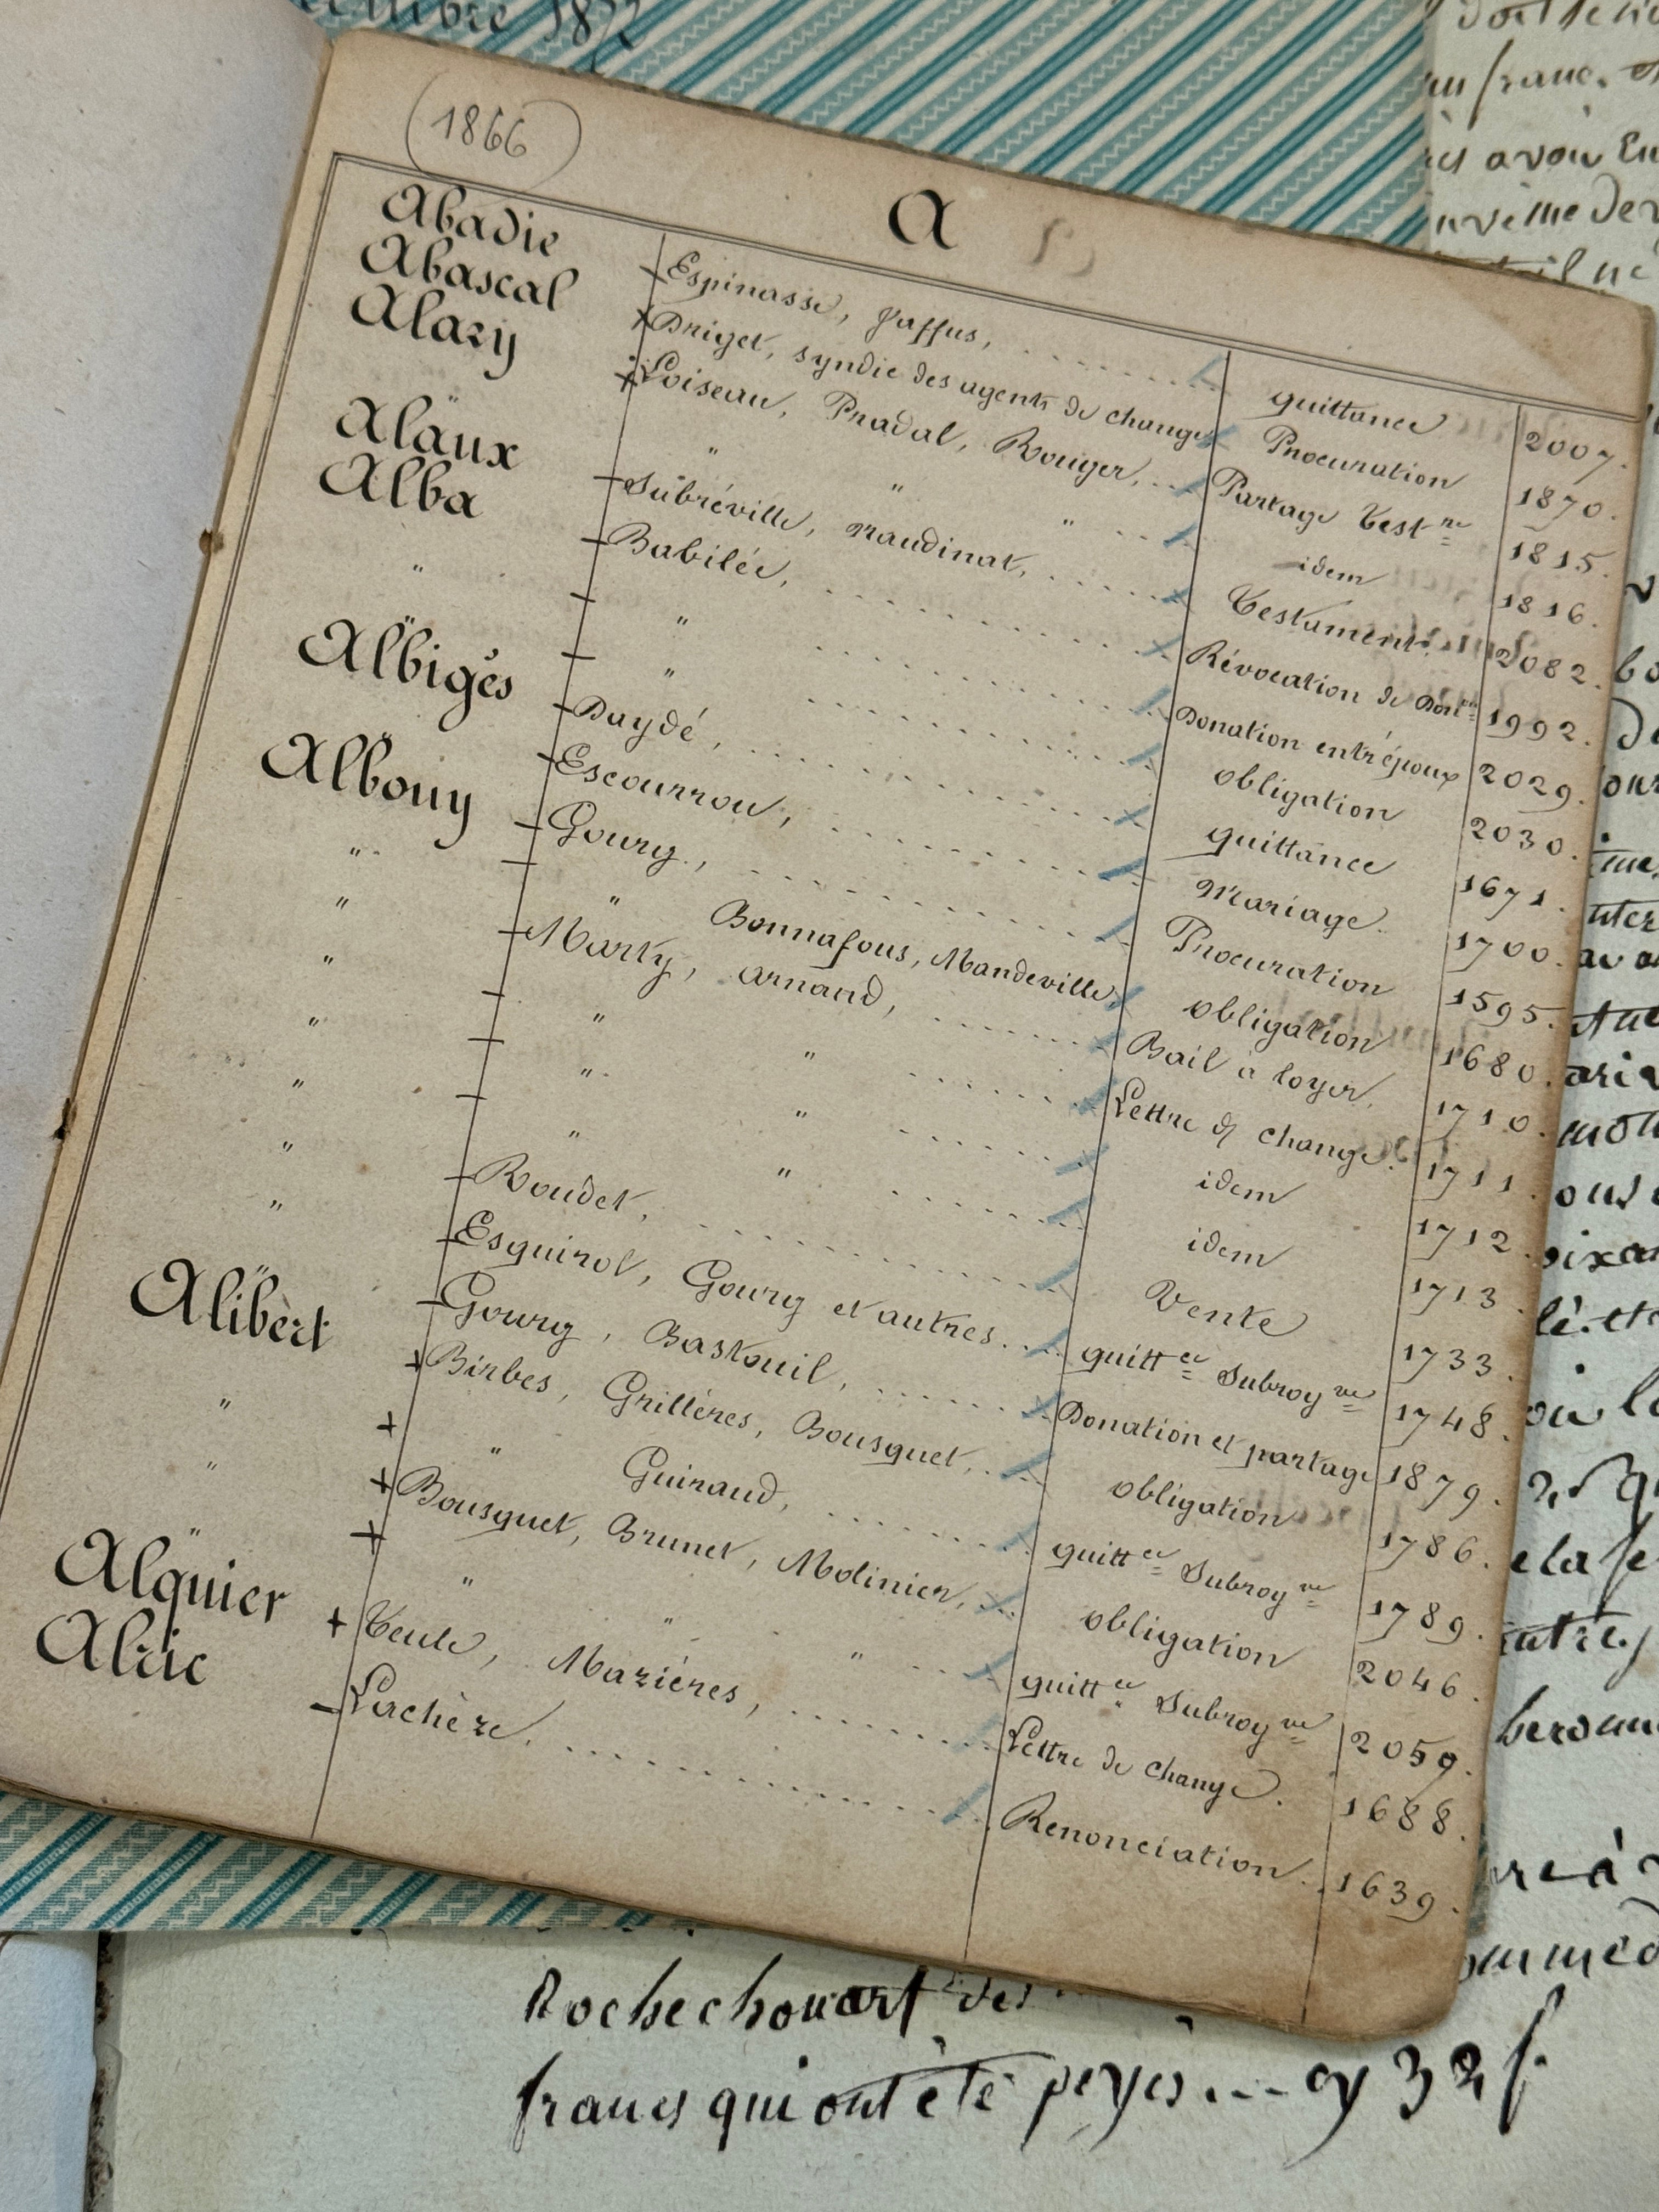 1872
(1866)
A
Abadie Espinasse, Jaffus, guittance 2007.
Abascal Driget, syndic des agents de change Procuration 1870.
Alary Loiseau, Pradal, Rouger, Partage Test.re 1815.
" " " " idem 1816.
Alaux Subréville, Naudinat, Testament 2082.
Alba Babilée, Révocation de Don.on 1992.
" " Donation entr'époux 2029.
" " obligation 2030.
Albigès Daydé, quittance 1671.
Albouy Escourrou, Mariage 1700.
" Gourg, Procuration 1595.
" " Bonnafous, Mandeville, obligation 1680.
" Marty, Arnaud, Bail à loyer. 1710.
" " " Lettre de change. 1711.
" " " idem 1712.
" " " idem 1713.
" Roudet, Vente 1733.
" Esquirol, Gourg et autres quitt.ce Subrog.ve 1748.
Gourg, Bastouil, Donation et partage 1879.
Alibert Birbes, Grillères, Bousquet, obligation 1786.
" " Guiraud, quitt.ce Subrog.ve 1789.
" Bousquet, Brunet, Molinier, obligation 2046.
" " " " quitt.ce Subrog.ve 2059.
Alquier Teule, Mazières, Lettre de change. 1688.
Alric Lachèze. Renonciation. 1639.
un franc
avoir
Rochechouart des
francs qui ont été peyés... cy 32 f.